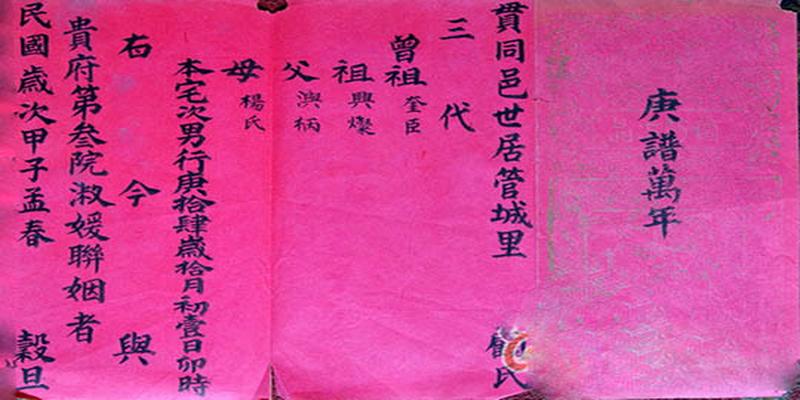 庚譜萬年
貫同邑世居管城里 氏
三代
曾祖 奎臣
祖 興燦
父 洪炳
母 楊氏
本宅次男行庚拾肆歲拾月初壹日卯時
右 今 與
貴府第叁院淑媛聯姻者
民國歲次甲子孟春 穀旦